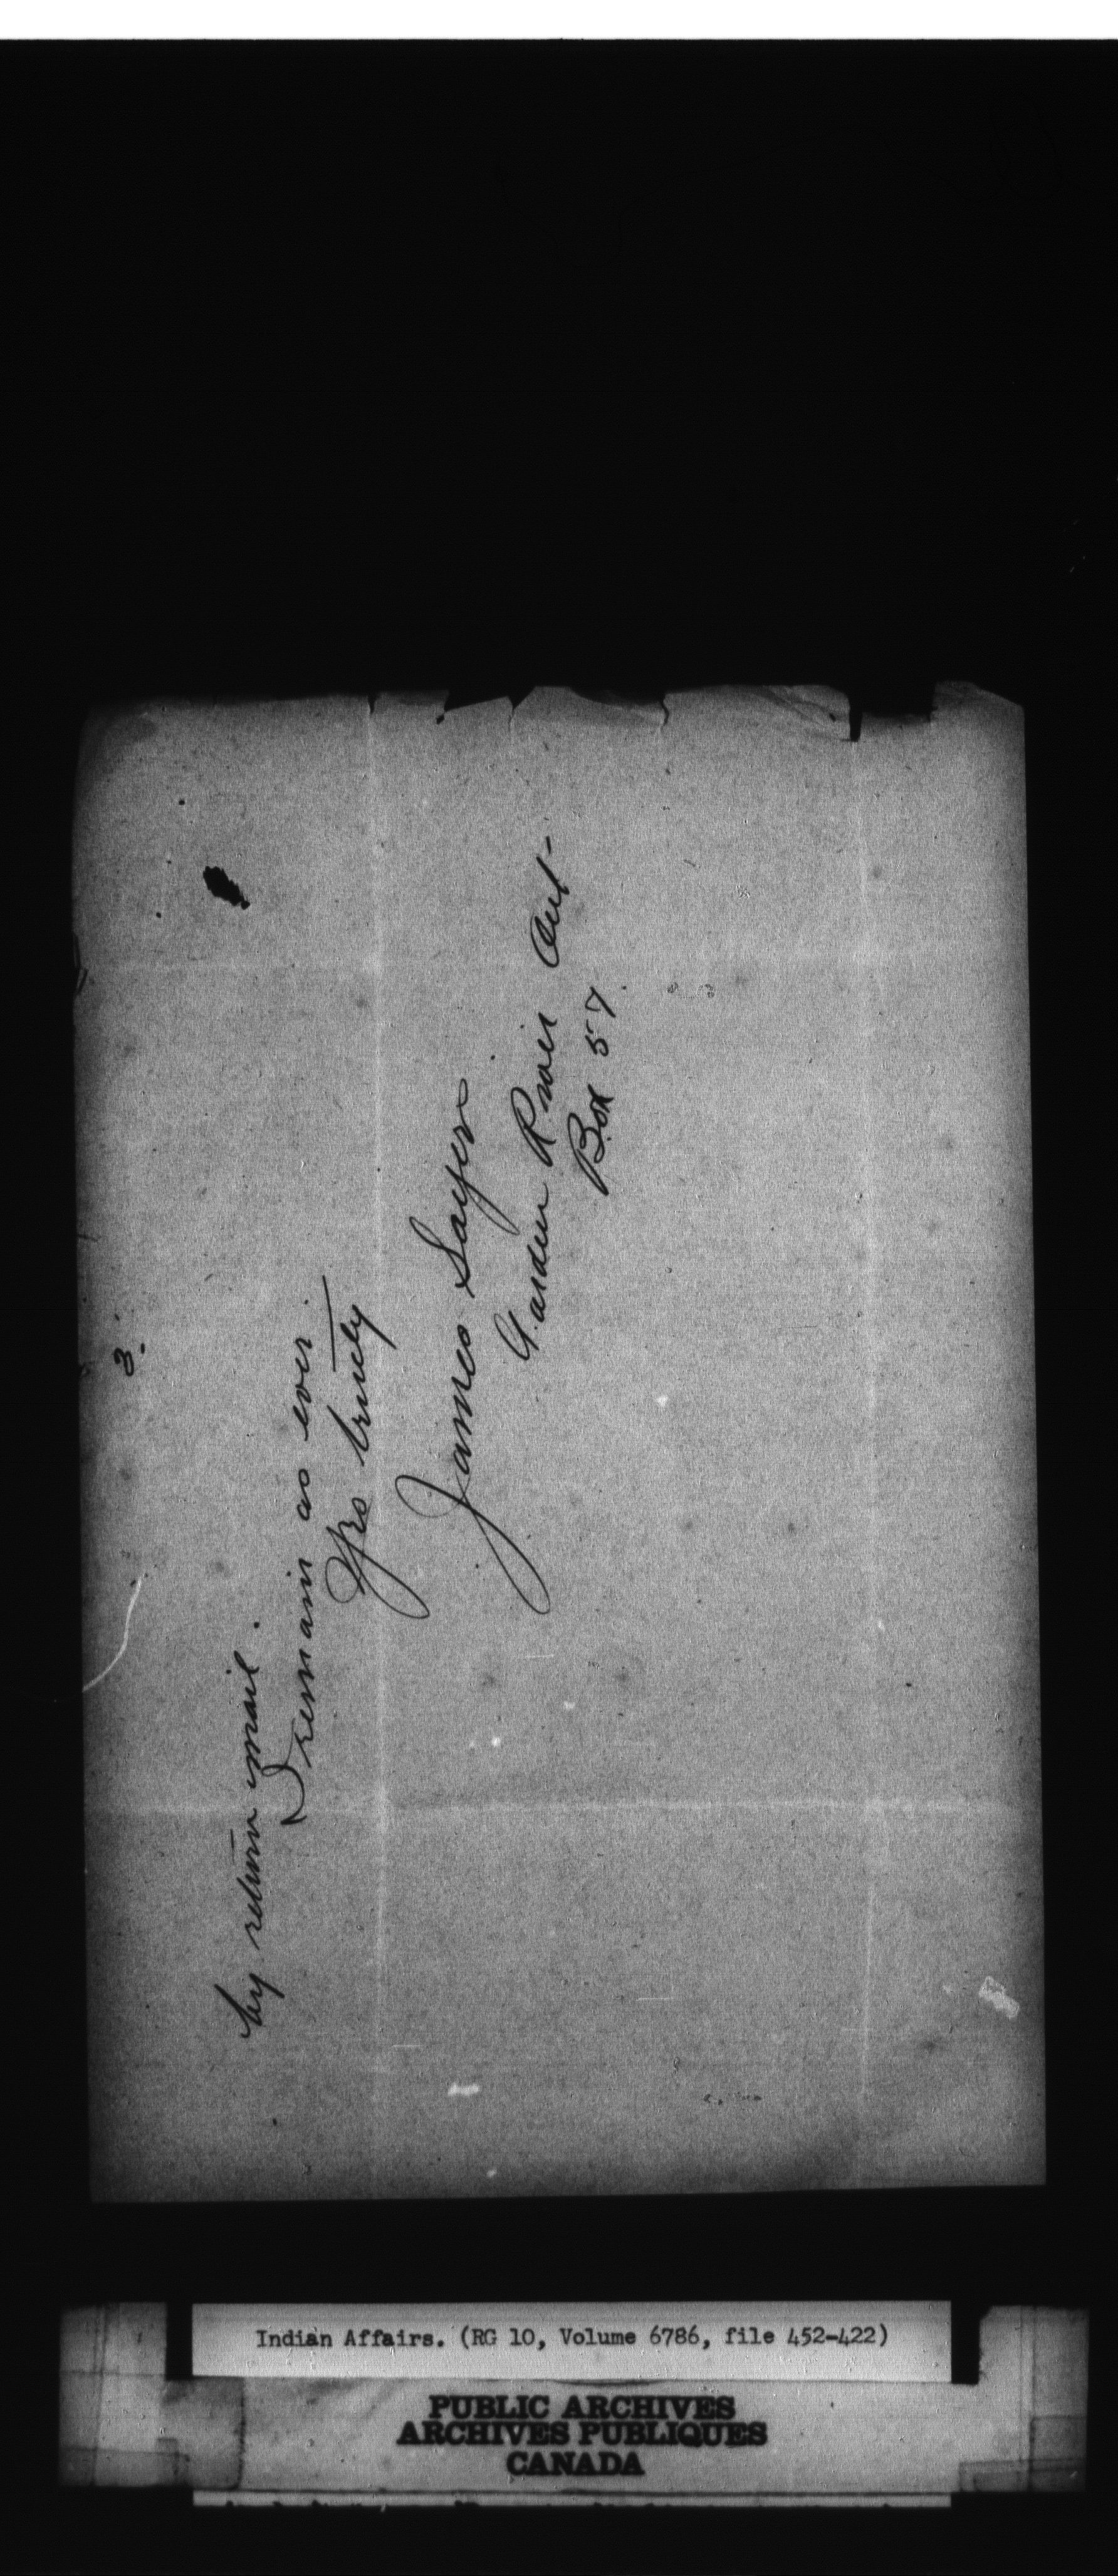 3.
by return mail.
I remain as ever
Yrs truly
James Sayers
Garden River Ont-
Box 57.
Indian Affairs. (RG 10, Volume 6786, file 452-422)
PUBLIC ARCHIVES
ARCHIVES PUBLIQUES
CANADA